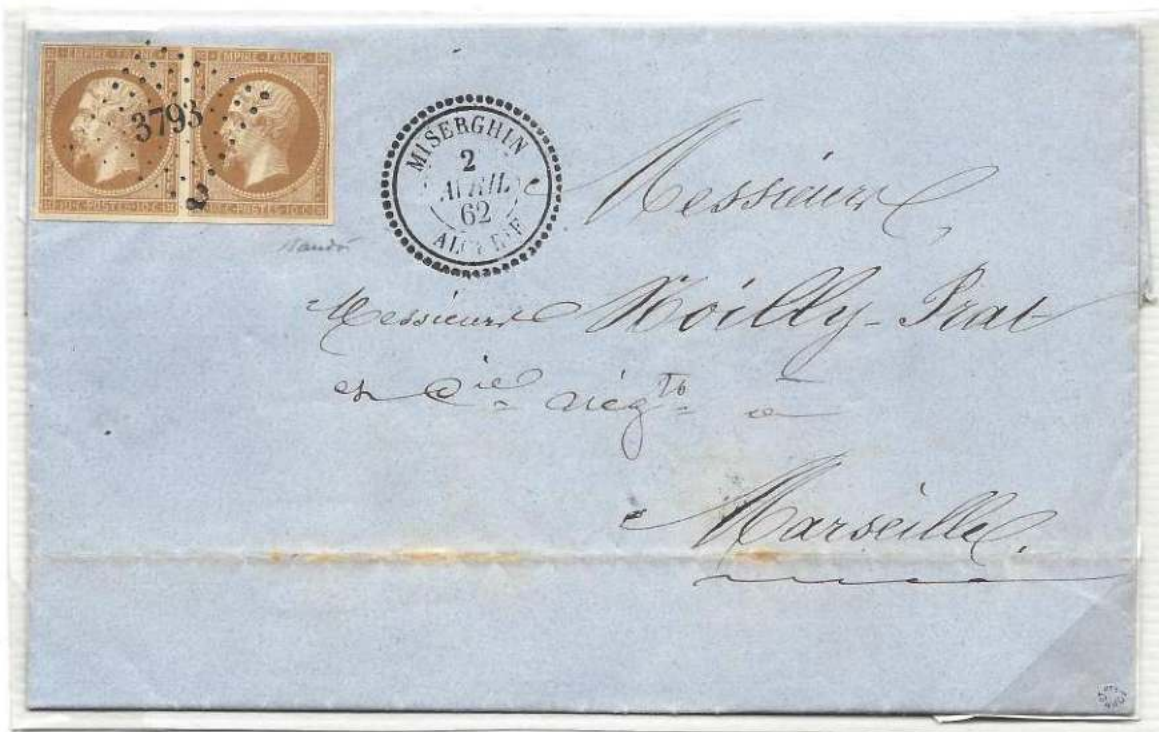 EMPIRE FRANC EMPIRE FRANC
3793
10 C POSTES 10 C C POSTES 10 C
MISERGHIN
2
AVRIL
62
ALGERIE
Messieurs
Messieurs Noilly-Prat
et Cie négts à
Marseille.